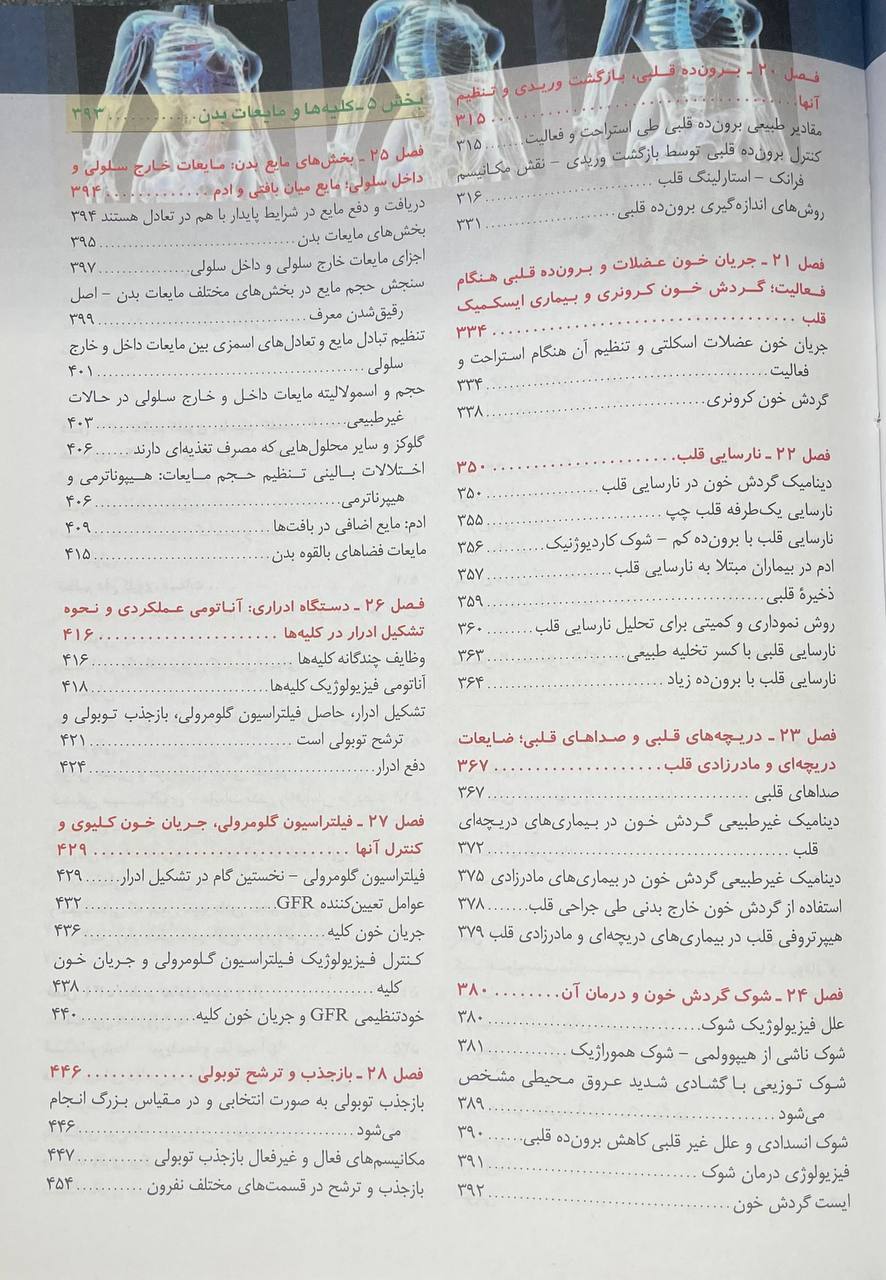 فصل ۲۰ ـ برون‌ده قلبی، بازگشت وریدی و تنظیم
آنها............................ ۳۱۵
مقادیر طبیعی برون‌ده قلبی طی استراحت و فعالیت....... ۳۱۵
کنترل برون‌ده قلبی توسط بازگشت وریدی – نقش مکانیسم
فرانک – استارلینگ قلب ............................ ۳۱۶
روش‌های اندازه‌گیری برون‌ده قلبی ................. ۳۳۱
فصل ۲۱ ـ جریان خون عضلات و برون‌ده قلبی هنگام
فعالیت؛ گردش خون کرونری و بیماری ایسکمیک
قلب ............................ ۳۳۴
جریان خون عضلات اسکلتی و تنظیم آن هنگام استراحت و
فعالیت............................ ۳۳۴
گردش خون کرونری............................ ۳۳۸
فصل ۲۲ ـ نارسایی قلب...................... ۳۵۰
دینامیک گردش خون در نارسایی قلب ................. ۳۵۰
نارسایی یک‌طرفه قلب چپ ......................... ۳۵۵
نارسایی قلب با برون‌ده کم – شوک کاردیوژنیک........ ۳۵۶
ادم در بیماران مبتلا به نارسایی قلب ............... ۳۵۷
ذخیرهٔ قلبی............................ ۳۵۹
روش نموداری و کمیتی برای تحلیل نارسایی قلب ........ ۳۶۰
نارسایی قلبی با کسر تخلیه طبیعی................... ۳۶۳
نارسایی قلب با برون‌ده زیاد ....................... ۳۶۴
فصل ۲۳ ـ دریچه‌های قلبی و صداهای قلبی؛ ضایعات
دریچه‌ای و مادرزادی قلب.................... ۳۶۷
صداهای قلبی ............................ ۳۶۷
دینامیک غیرطبیعی گردش خون در بیماری‌های دریچه‌ای
قلب ............................ ۳۷۲
دینامیک غیرطبیعی گردش خون در بیماری‌های مادرزادی ۳۷۵
استفاده از گردش خون خارج بدنی طی جراحی قلب....... ۳۷۸
هیپرتروفی قلب در بیماری‌های دریچه‌ای و مادرزادی قلب ۳۷۹
فصل ۲۴ ـ شوک گردش خون و درمان آن......... ۳۸۰
علل فیزیولوژیک شوک............................ ۳۸۰
شوک ناشی از هیپوولمی – شوک هموراژیک ............ ۳۸۱
شوک توزیعی با گشادی شدید عروق محیطی مشخص
می‌شود ............................ ۳۸۹
شوک انسدادی و علل غیر قلبی کاهش برون‌ده قلبی...... ۳۹۰
فیزیولوژی درمان شوک ............................ ۳۹۱
ایست گردش خون............................ ۳۹۲
بخش ۵ ـ کلیه‌ها و مایعات بدن............. ۳۹۳
فصل ۲۵ ـ بخش‌های مایع بدن: مایعات خارج سلولی و
داخل سلولی؛ مایع میان بافتی و ادم ............. ۳۹۴
دریافت و دفع مایع در شرایط پایدار با هم در تعادل هستند ۳۹۴
بخش‌های مایعات بدن............................ ۳۹۵
اجزای مایعات خارج سلولی و داخل سلولی.............. ۳۹۷
سنجش حجم مایع در بخش‌های مختلف مایعات بدن – اصل
رقیق‌شدن معرف ............................ ۳۹۹
تنظیم تبادل مایع و تعادل‌های اسمزی بین مایعات داخل و خارج
سلولی ............................ ۴۰۱
حجم و اسمولالیته مایعات داخل و خارج سلولی در حالات
غیرطبیعی............................ ۴۰۳
گلوکز و سایر محلول‌هایی که مصرف تغذیه‌ای دارند ...... ۴۰۶
اختلالات بالینی تنظیم حجم مایعات: هیپوناترمی و
هیپرناترمی............................ ۴۰۶
ادم: مایع اضافی در بافت‌ها....................... ۴۰۹
مایعات فضاهای بالقوه بدن......................... ۴۱۵
فصل ۲۶ ـ دستگاه ادراری: آناتومی عملکردی و نحوه
تشکیل ادرار در کلیه‌ها ...................... ۴۱۶
وظایف چندگانه کلیه‌ها ............................ ۴۱۶
آناتومی فیزیولوژیک کلیه‌ها......................... ۴۱۸
تشکیل ادرار، حاصل فیلتراسیون گلومرولی، بازجذب توبولی و
ترشح توبولی است ............................ ۴۲۱
دفع ادرار............................ ۴۲۴
فصل ۲۷ ـ فیلتراسیون گلومرولی، جریان خون کلیوی و
کنترل آنها ............................ ۴۲۹
فیلتراسیون گلومرولی – نخستین گام در تشکیل ادرار...... ۴۲۹
عوامل تعیین‌کننده GFR............................ ۴۳۲
جریان خون کلیه............................ ۴۳۶
کنترل فیزیولوژیک فیلتراسیون گلومرولی و جریان خون
کلیه ............................ ۴۳۸
خودتنظیمی GFR و جریان خون کلیه................. ۴۴۰
فصل ۲۸ ـ بازجذب و ترشح توبولی ............. ۴۴۶
بازجذب توبولی به صورت انتخابی و در مقیاس بزرگ انجام
می‌شود ............................ ۴۴۶
مکانیسم‌های فعال و غیرفعال بازجذب توبولی ........... ۴۴۷
بازجذب و ترشح در قسمت‌های مختلف نفرون ........... ۴۵۴